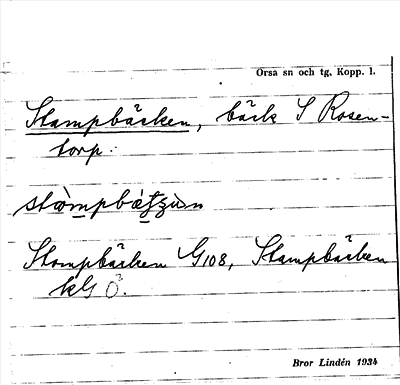 Orsa sn och tg, Kopp. l.
Stampbäcken, bäck S Rosen-
torp.
Stampbäcken G108, Stampbäcken
kG Ö.
Bror Lindén 1934